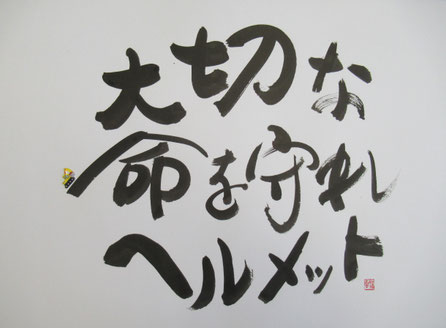 大切な
命を守れ
ヘルメット